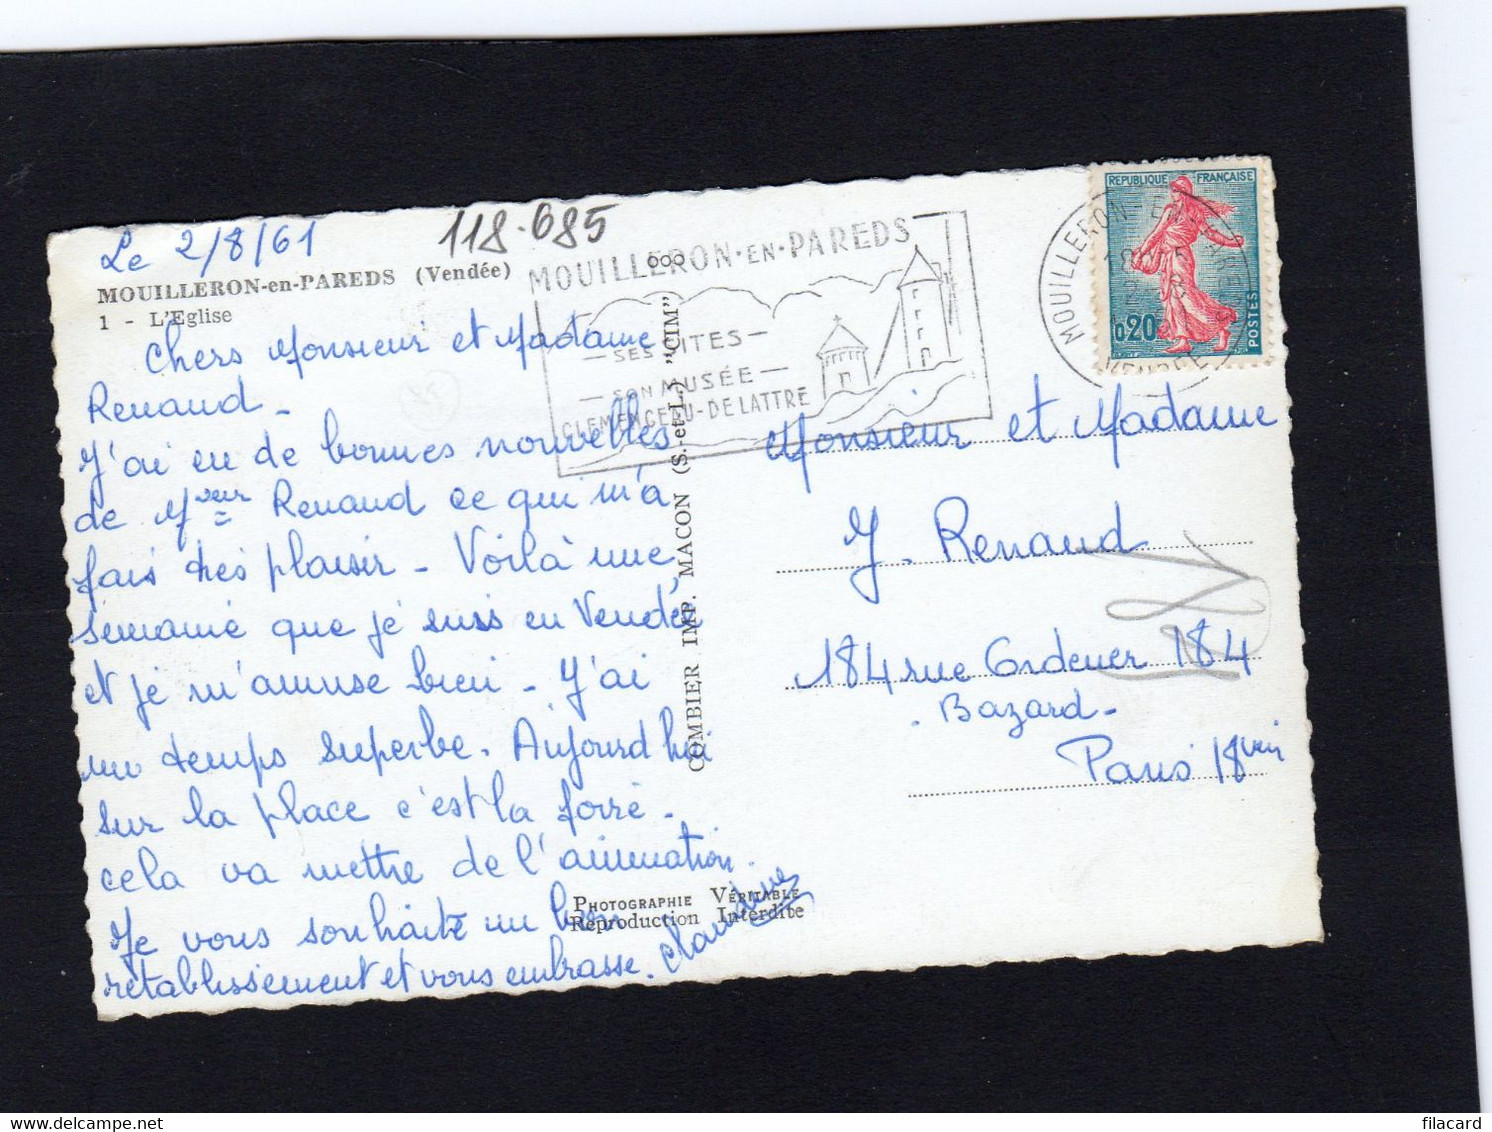 Le 2/8/61
118-085
MOUILLERON-en-PAREDS (Vendée)
1 - L'Eglise
Chers Monsieur et Madame
Renaud -
J'ai eu de bonnes nouvelles
de Mr Renaud ce qui m'a
fais très plaisir - Voilà une
semaine que je suis en Vendée
et je m'amuse bien - J'ai
un temps superbe. Aujourd'hui
sur la place c'est la foire -
cela va mettre de l'animation.
Je vous souhaite un bon
retablissement et vous embrasse.
Claudine
MOUILLERON-EN-PAREDS
- SES SITES -
- SON MUSÉE -
CLEMENCEAU-DE LATTRE
COMBIER IMP. MACON (S.-et-L.) "CIM"
PHOTOGRAPHIE VÉRITABLE
Reproduction Interdite
REPUBLIQUE FRANÇAISE
0,20
POSTES
MOUILLERON-EN-PAREDS
VENDEE
Monsieur et Madame
J. Renaud
184 rue Ordener 184
- Bazard -
Paris 18
filacard